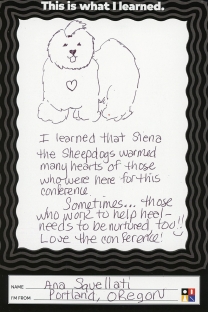 This is what I learned.
I learned that Siena
the Sheepdogs warmed
many hearts of those
who were here for this
conference.
Sometimes... those
who work to help heal -
needs to be nurtured, too!!
Love the conference!
NAME Ana Squellati
I'M FROM Portland, OREGON